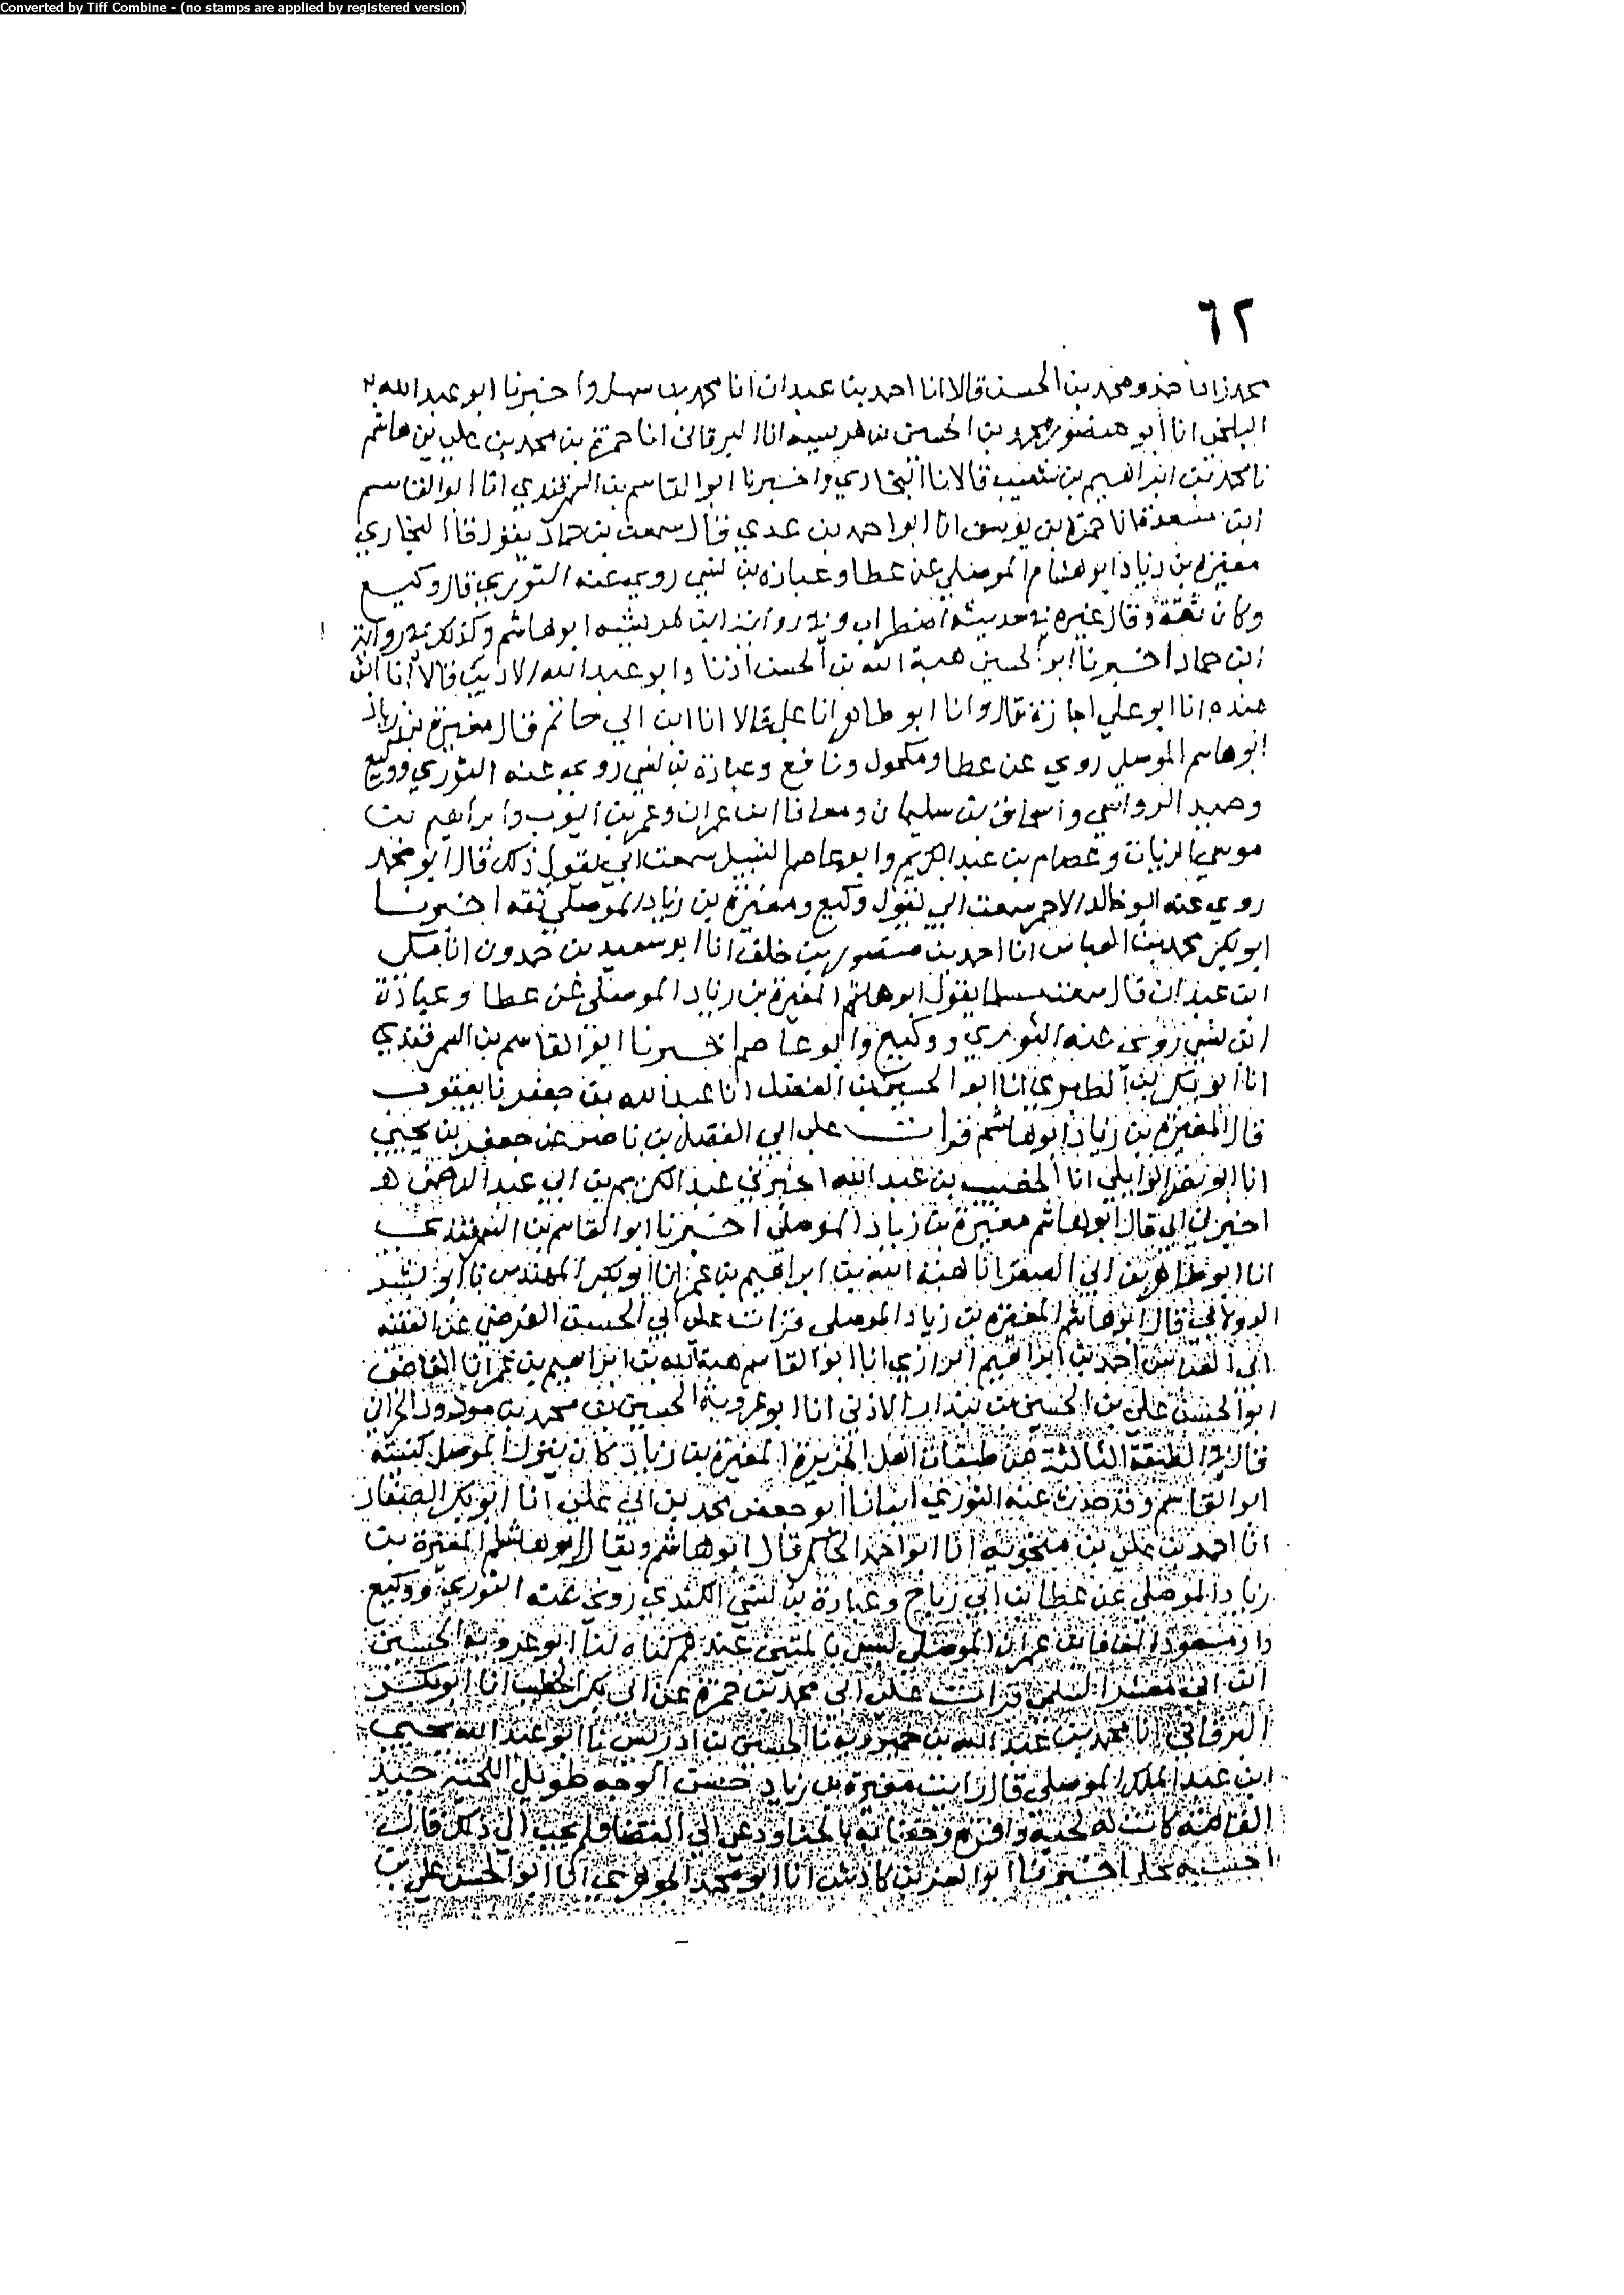 Converted by Tiff Combine - (no stamps are applied by registered version)
٦٢
محمد زاد احمد ومحمد بن الحسن قالا انا احمد بن عبدان انا محمد بن سهل واخبرنا ابو عبد الله
البلخي انا ابو منصور محمد بن الحسين بن هريسه انا البرقاني انا حمزة بن محمد بن علي بن هاشم
نا محمد بن ابراهيم بن شعيب قالا نا البخاري واخبرنا ابو القاسم بن السمرقندي انا ابو القاسم
ابن مسعدة انا حمزة بن يوسف انا ابو احمد بن عدي قال سمعت بن حماد يقول قال البخاري
مغيرة بن زياد ابو هشام الموصلي عن عطا وعبادة بن نسي روى عنه الثوري قال وكيع
وكان ثقة وقال غيره في حديثه اضطراب وفي رواية ابن هريسه ابو هاشم وكذلك في رواية
ابن حماد اخبرنا ابو الحسين هبة الله بن الحسن اذنا وابو عبد الله الاديب قالا انا ابن
منده انا ابو علي اجازة قال وانا ابو طاهر انا علي قالا انا ابن ابي حاتم قال مغيرة بن زياد
ابو هاسم الموصلي روي عن عطا ومكحول ونافع وعبادة بن نسي روي عنه الثوري ووكيع
وحميد الرواسي واسحاق بن سليمان ومعافا ابن عمران وعمر بن ايوب وابراهيم بن
موسى الزيات وعصام بن عبد الكريم وابو عاصم النبيل سمعت ابي يقول ذلك قال ابو محمد
روي عنه ابو خالد الاحمر سمعت ابي يقول وكيع ومغيرة بن زياد الموصلي ثقه اخبرنا
ابو بكر محمد بن العباس انا احمد بن منصور بن خلف انا ابو سعيد بن حمدون انا مكي
ابن عبدان قال سمعت مسلما يقول ابو هاشم المغيرة بن زياد الموصلي عن عطا وعبادة
ابن نسي روى عنه الثوري ووكيع وابو عاصم اخبرنا ابو القاسم بن السمرقندي
انا ابو بكر بن الطبري انا ابو الحسين بن الفضل انا عبد الله بن جعفر نا يعقوب
قال المغيرة بن زياد ابو هاشم قرات على ابي الفضل بن ناصر عن جعفر بن يحيى
انا ابو نصر الوايلي انا الخصيب بن عبد الله اخبرني عبد الكريم بن ابي عبد الرحمن
اخبرني ابي قال ابو هاشم مغيرة بن زياد الموصلي اخبرنا ابو القاسم بن السمرقندي
انا ابو طاهر بن ابي الصقر انا هبة الله بن ابراهيم بن عمر انا ابو بكر المهندس نا ابو بشر
الدولابي قال ابو هاشم المغيرة بن زياد الموصلي قرات على ابي الحسن الفرضي عن الفقيه
ابي العباس احمد بن ابراهيم الرازي انا ابو القاسم هبة الله بن ابراهيم بن عمر انا القاضي
ابو الحسن علي بن الحسين بن بندار الاذني انا ابو عروبة الحسين بن محمد بن مودود الحراني
قال في الطبقة الثالثة من طبقات اهل الجزيرة المغيرة بن زياد كان ينزل الموصل كنيته
ابو القاسم وقد حدث عنه الثوري انبانا ابو جعفر محمد بن ابي علي انا ابو بكر الصفار
انا احمد بن علي بن منجويه انا ابو احمد الحاكم قال ابو هاشم ويقال ابو هشام المغيرة بن
زياد الموصلي عن عطا بن ابي رباح وعبادة بن نسي الكندي روى عنه الثوري ووكيع
وابو مسعود المعافا بن عمران الموصلي ليس بالمتين عندهم كناه لنا ابو عروبه الحسين
ابن ابي معشر السلمي قرات على ابي محمد بن حمزة عن ابي بكر الخطيب انا ابو بكر
البرقاني انا محمد بن عبد الله بن خميرويه نا الحسين بن ادريس نا ابو عبد الله يحيى
ابن عبد الملك الموصلي قال رايت مغيرة بن زياد حسن الوجه طويل اللحية جيد
القامة كانت له لحية وافرة وخضابه بالحنا ودعي الى القضا فلم يجب الى ذلك قال
احسبه عمله اخبرنا ابو العز بن كادش انا ابو محمد الجوهري انا ابو الحسن علي بن